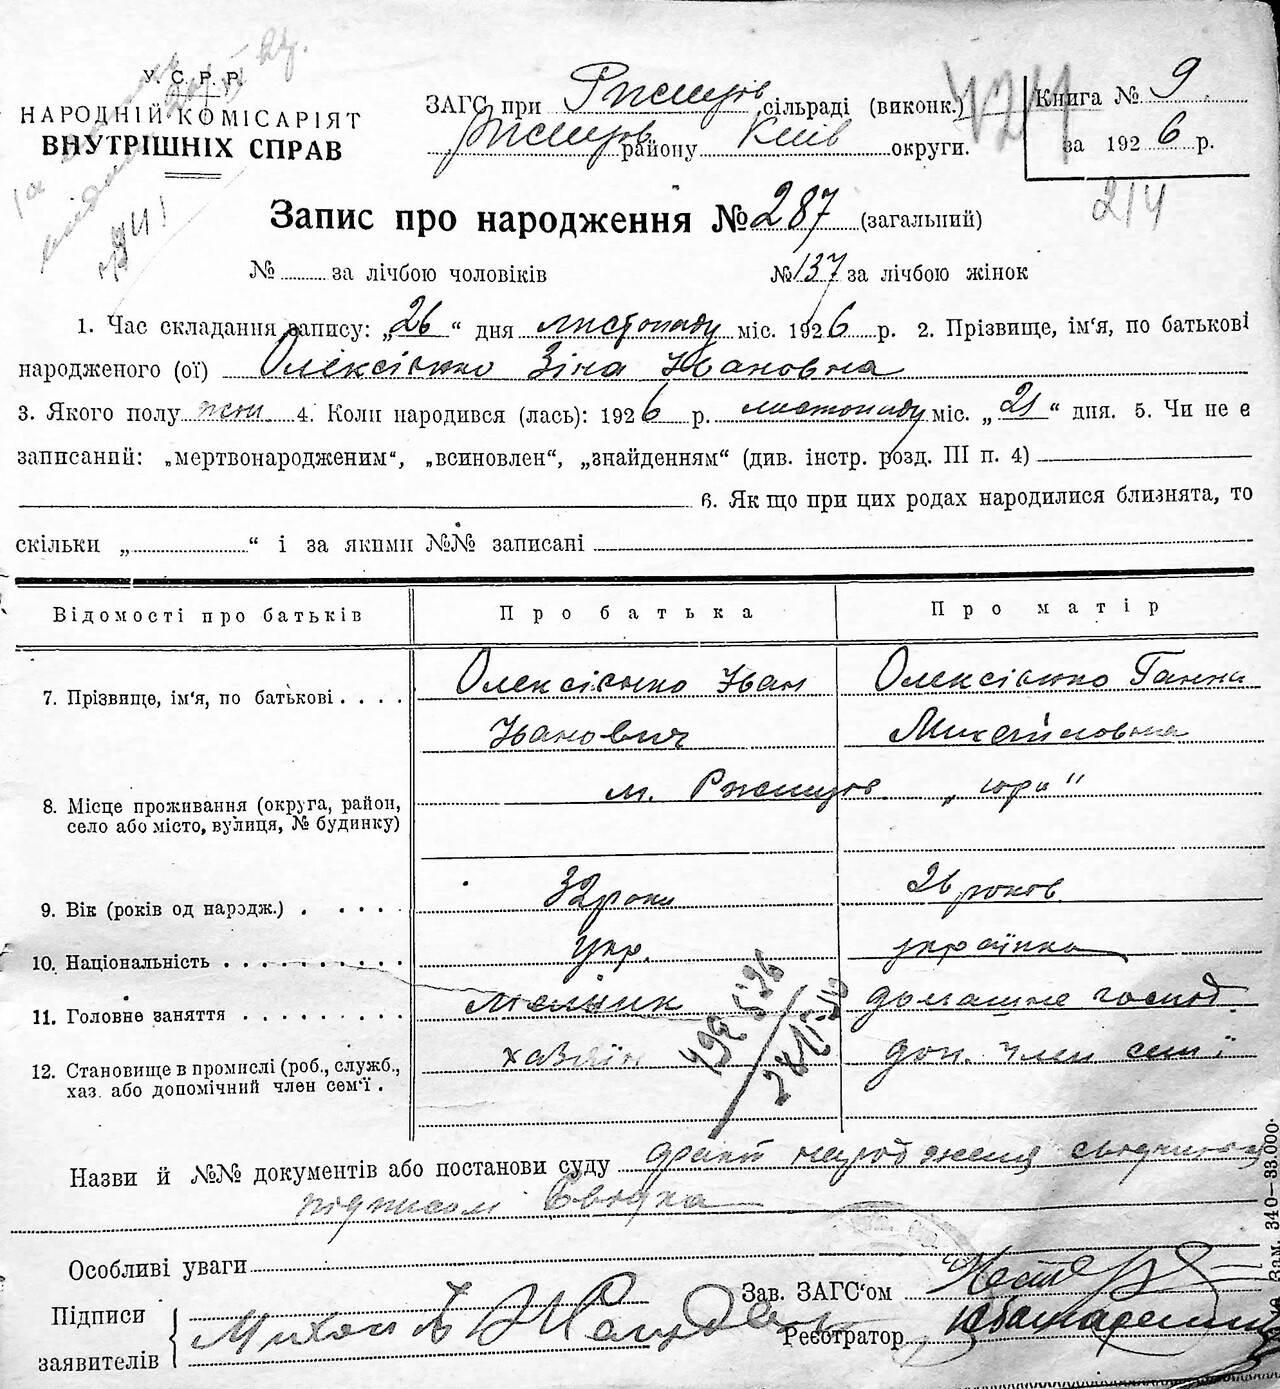 У. С. Р. Р.
НАРОДНІЙ КОМІСАРІЯТ
ВНУТРІШНІХ СПРАВ
ЗАГС при Ржищів сільраді (виконк.)
Ржищов району Київ округи.
Книга № 9
за 1926 р.
424
214
Запис про народження № 287 (загальний)
№ за лічбою чоловіків № 137 за лічбою жінок
1. Час складання запису: „26“ дня листопаду міс. 1926 р. 2. Прізвище, ім'я, по батькові
народженого (ої) Олексієнко Зіна Івановна
3. Якого полу жін. 4. Коли народився (лась): 1926 р. листопаду міс. „21“ дня. 5. Чи не є
записаний: „мертвонародженим“, „всиновлен“, „знайденням“ (див. інстр. розд. III п. 4)
6. Як що при цих родах народилися близнята, то
скільки „ “ і за якими №№ записані
Відомості про батьків Про батька Про матір
7. Прізвище, ім'я, по батькові Олексієнко Іван Олексієнко Ганна
Іванович Михайловна
8. Місце проживання (округа, район, м. Ржищов
село або місто, вулиця, № будинку)
9. Вік (років од нарэдж.) 32 роки 26 років
10. Національність укр. українка
11. Головне заняття мельник домашнє господ.
12. Становище в промислі (роб., служб., хазяїн доп. член сем'ї
хаз. або допомічний член сем'ї.
Назви й №№ документів або постанови суду факт народження
підписом
Особливі уваги
Зав. ЗАГС'ом
Підписи
заявителів
Реєстратор
Зам. 340—33.000.